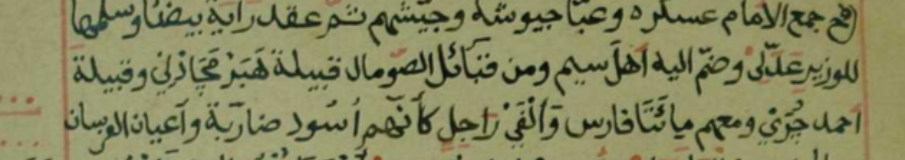 جمع الامام عسكره وعبّا جيوشه وجيّشهم ثم عقد راية بيضا وسلمها
للوزير عدلى وضمّ اليه اهل سيم ومن قبائل الصومال قبيلة هَبَرْ مَجَادْلِيْ وقبيلة
احمد جُرّيْ ومعهم مِائَتَا فارس وَأَلْفَيْ راجل كأنّهم أُسُود ضاريَة وأعيان الفرسان